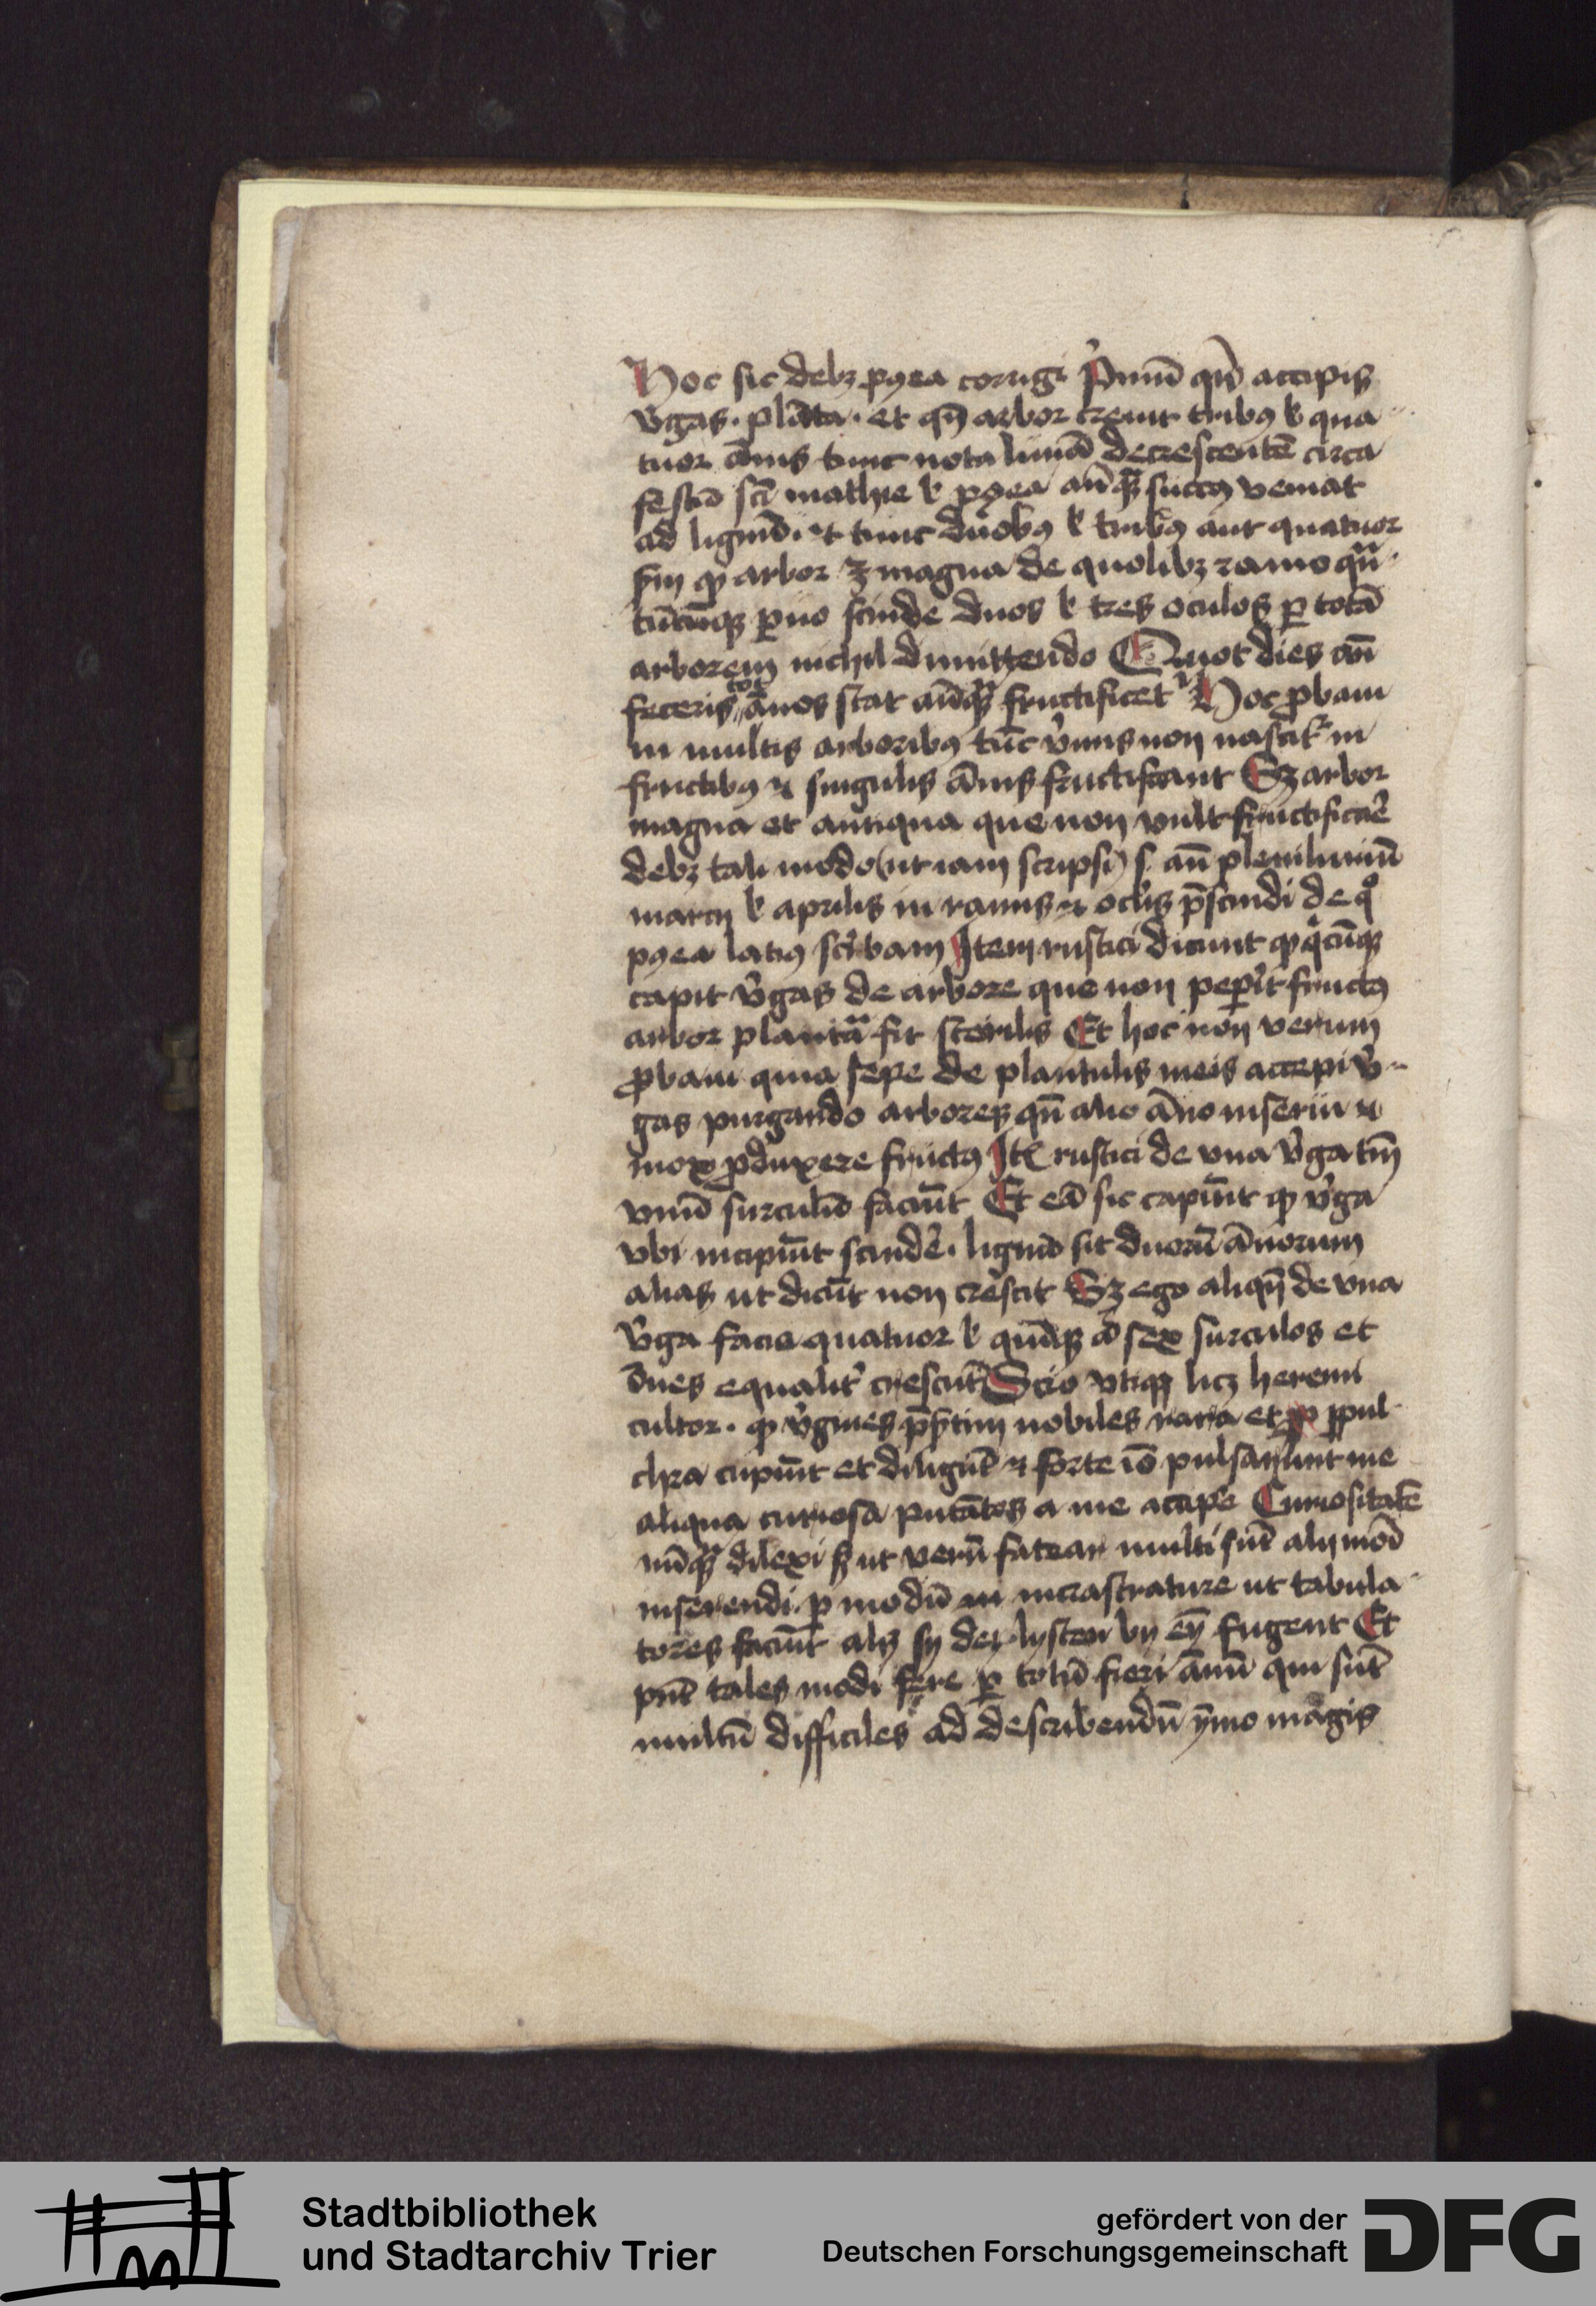 Hoc sic debꝫ pꝯea corrigi Pͥmū qn̄ accipis
v̓gas · plāta · et qn̄ arbor creuit tribꝯ ł qua
tuor ānis tunc nota lunā decrescentē circa
festū sc̄i mathie ł pꝯea an̄qꝫ succꝯ veniat
ad lignū · et tunc duobꝯ ł tribꝯ aut quatuor
ẜm ꝙ arbor ꝫ magna de quolibꝫ ramo qn̄
tūcūqꝫ ꝑuo scinde duos ł tres oculos ꝑ totā
arborem nichil dimittendo Quot dies an̄
feceris tot ānos stat an̄qꝫ fructificet Hoc ꝓbaui
in multis arboribꝯ tūc v̓mis non nascit᷑ in
fructibꝯ ⁊ singulis ānis fructificant Sꝫ arbor
magna et antiqua que non vult fructificare̓
debꝫ tali modo (ut iam scripsi) s. an̄ pleniluniū
marcij ł aprilis in ramis ⁊ oclis p̄scindi de qͦ
pꝯea latiꝯ scͥbam Item rustici dicunt ꝙ qͥcūqꝫ
capit v̓gas de arbore que non pepͥit fructꝯ
arbor plantata fit sterilis Et hoc non verum
ꝓbaui quia sepe de plantulis meis accepi v̓
gas purgando arbores qn̄ alio āno inserui ⁊
mox ꝓduxere fructꝯ Itē rustici de vna v̓ga tm̄
vnū surculū faciūt Et eā sic capiūt ꝙ v̓ga
vbi incipiūt scinde̓ · lignū sit duorū ānorum
alias ut dicūt non crescit Sꝫ ego aliqn̄ de vna
v̓ga facio quatuor ł quīqꝫ aō sex surculos et
oēs equalit̓ crescūt Scio vtiqꝫ licꝫ heremi
cultor · ꝙ v̓gines p̄ẜtim nobiles rara et pul
chra cupiūt et diligūt ⁊ forte iō pulsauͬunt me
aliqua curiosa putātes a me accipe̓ Curiositatē
nūqꝫ dilexi ẜꝫ ut verū fatear multi sūt alij modi
inserendi · ꝑ modū in incrastrature ut tabula
tores faciūt als sy der lysten yn eyn fugent Et
pn̄t tales modi fere ꝑ totū fieri ānū qui sūt
multū difficiles ad describendū ȳmo magis
Stadtbibliothek
und Stadtarchiv Trier
gefördert von der
Deutschen Forschungsgemeinschaft
DFG